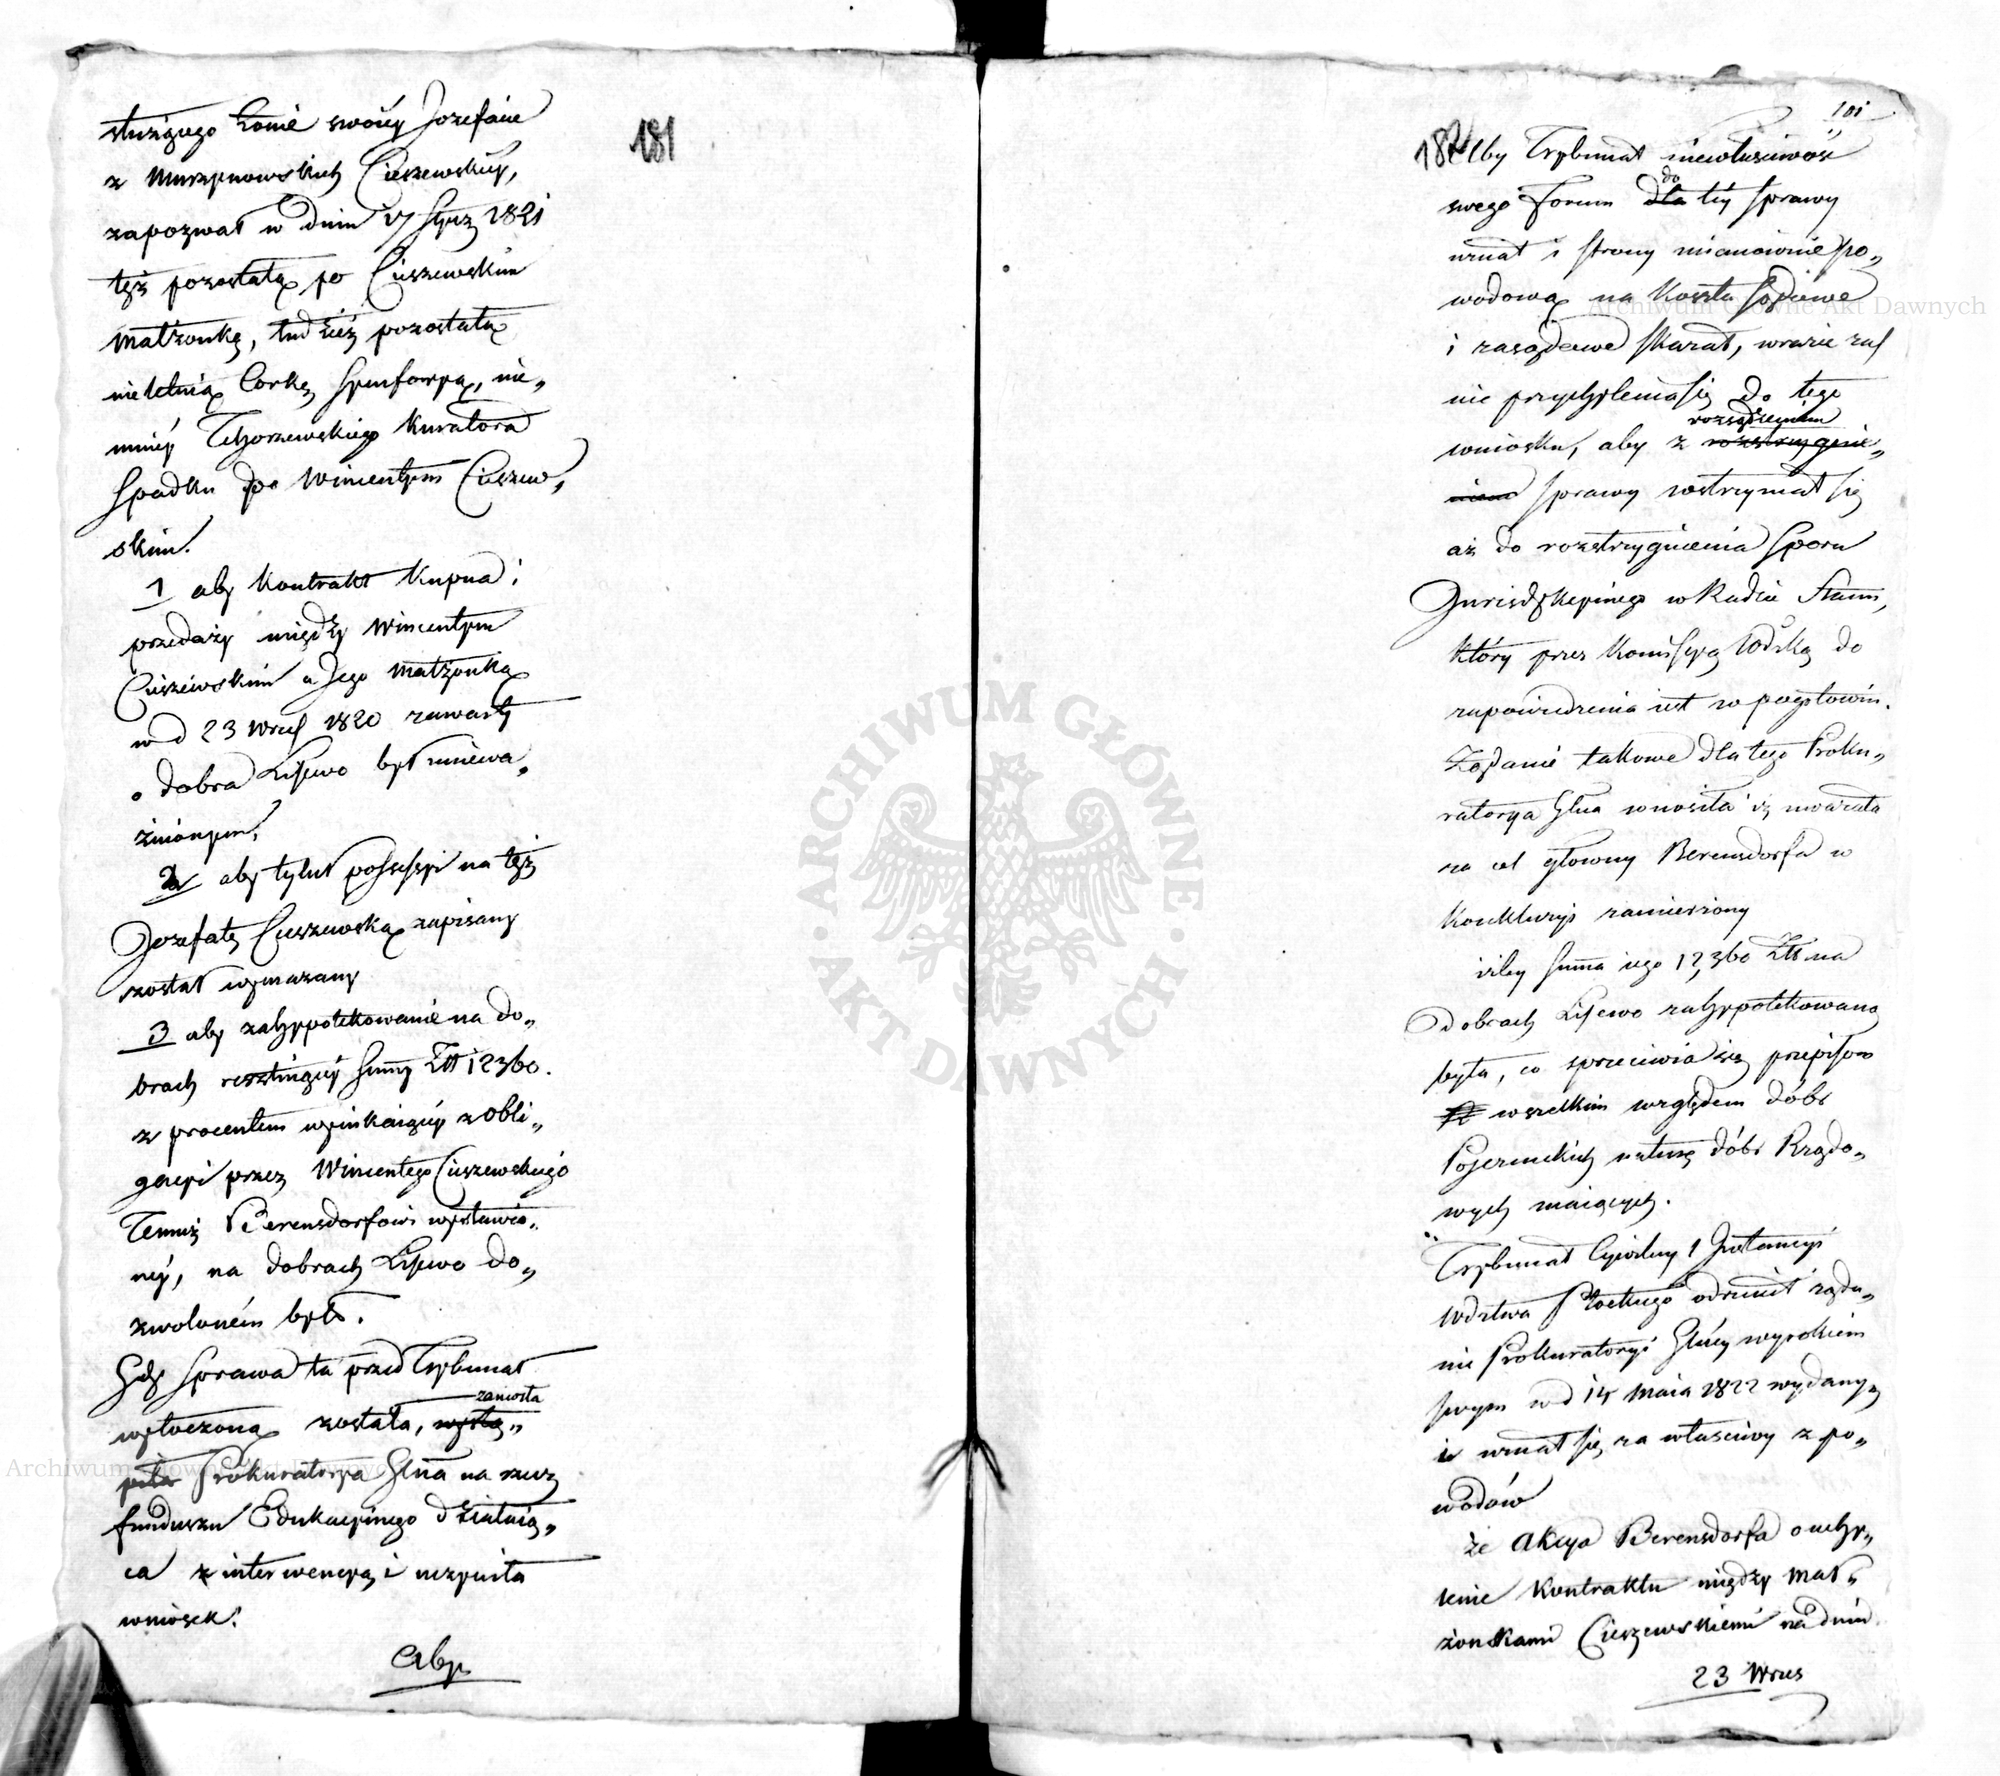 181
służącego Żonie swoiéy Jozefacie
z Murzynowskich Cieszewskiéy,
zapozwał w dniu 17 Stycz 1821
tęż pozostałą po Cieszewskim
małżonkę, tudzież pozostałą
nieletnią Corkę, nie„
mniéy Tchorzewskiego Kuratora
Spadku po Wincentym Cieszew„
skim.
1 aby Kontrakt Kupna i
przedaży między Wincentym
Cieszewskim a Jego małżonką
w d 23 Wrześ 1820 zawarty
o dobra Lisewo był uniewa„
żnionym,
2 aby tytuł possessyi na tęż
Jozefatę Cieszewską zapisany
został wymazany
3 aby zahypotekowanie na do„
brach resztuiącéy Summy Złt 12360.
z procentem wynikaiącéy z obli„
gacyi przez Wincentego Cieszewskiego
Temuż Berensdorfowi wystawio„
néy, na dobrach Lisewo do„
zwoloném było.
Gdy Sprawa ta przed Trybunał
wytoczoną została, wystą„ zaniosła
piła Prokuratorya Glna na rzecz
funduszu Edukacyinego działaią„
ca z interwencyą i uczyniła
wniosek:
Aby
101
182
Aby Trybunał niewłaściwość
swego Forum dla do téy Sprawy
uznał i strony mianowicie po„
wodową na koszta sądowe
i zasądowe skazał, w razie zaś
nie przychylenia się do tego
wniosku, aby z rozstrzygnie„ rozsądzeniem
niem sprawy wstrzymał się
aż do rozstrzygnienia Sporu
Jurisdykcyinego w Radzie Stanu,
który przez Komissyą Wdzką do
zapowiedzenia iest w pogotowiu.
Żądanie takowe dla tego Proku„
ratorya Glna wnosiła iż uważała
za cel głowny Berensdorfa w
Konkluzyi zamierzony
iżby Summa iego 12,360 Złt na
dobrach Lisewo zahypotekowaną
była, co sprzeciwia się przepisom
wszelkim względem dóbr
Pojezuickich naturę dóbr Rządo„
wych maiących.
Trybunał Cywilny 1 Instancyi
Wdztwa Płockiego odrzucił żąda„
nie Prokuratoryi Glnéy wyrokiem
swym w d 14 Maia 1822 wydanym
i uznał się za właściwy z po„
wodów
że akcya Berensdorfa o uchy„
lenie Kontraktu między Mał„
żonkami Cieszewskiemi na dniu
23 Wrześ
Archiwum Główne Akt Dawnych
Archiwum Główne Akt Dawnych
ARCHIWUM GŁÓWNE AKT DAWNYCH